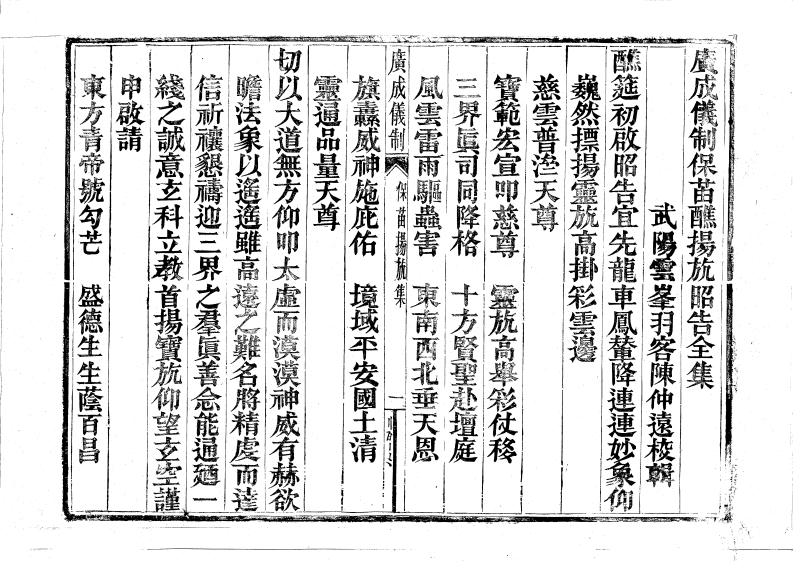 廣成儀制保苗醮揚旂昭告全集
武陽雲峯羽客陳仲遠校輯
醮筵初啟昭告宜先龍車鳳輦降連連妙象仰
巍然摽揚靈旂高掛彩雲邊
慈雲普渰天尊
寶範宏宣叩慈尊　靈旂高舉彩仗移
三界眞司同降格　十方賢聖赴壇庭
風雲雷雨驅蟲害　東南西北垂天恩
旗纛威神施庇佑　境域平安國土清
廣成儀制　保苗揚旂集　一
靈通品量天尊
切以大道無方仰叩太虛而漠漠神威有赫欲
瞻法象以遙遙雖高遠之難名將精虔而達
信祈禳懇禱迎三界之羣眞善念能通廼一
綫之誠意玄科立教首揚寶旂仰望玄空謹
申啟請
東方青帝號勾芒　盛德生生蔭百昌